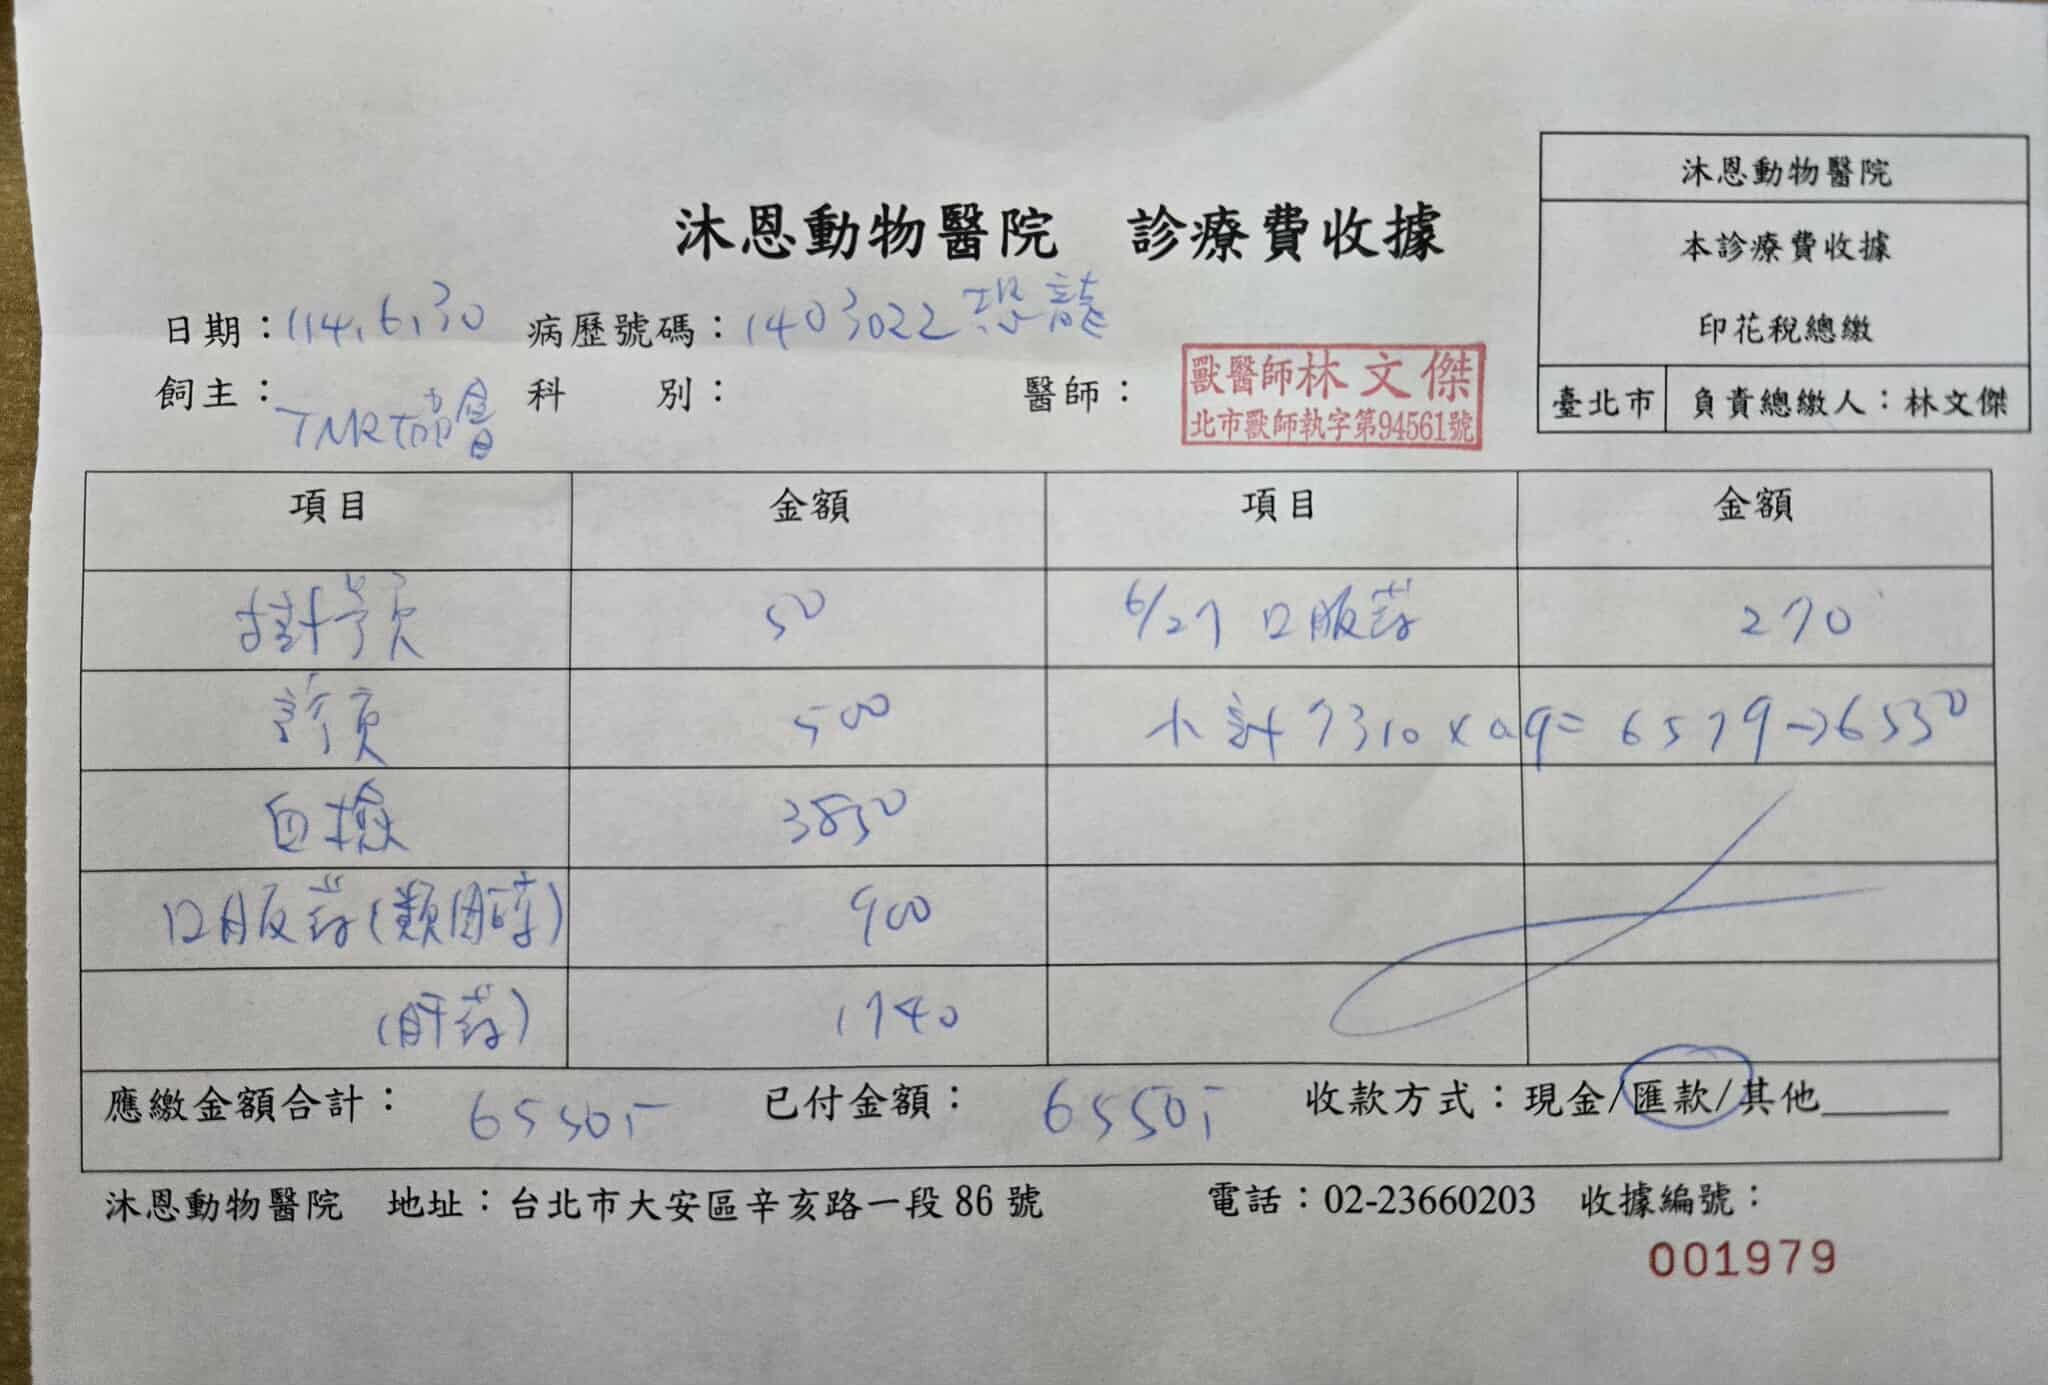 沐恩動物醫院
本診療費收據
印花稅總繳
臺北市 負責總繳人：林文傑
沐恩動物醫院 診療費收據
日期：114.6.30 病歷號碼：1403022 恐龍
飼主：TNR協會 科 別： 醫師：
獸醫師林文傑
北市獸師執字第94561號
項目 金額 項目 金額
掛号費 50 6/27 口服葯 270
診費 500 小計 7310 x 0.9 = 6579 → 6550
血檢 3850
口服葯(類固醇) 900
(肝葯) 1740
應繳金額合計：6550.- 已付金額：6550.- 收款方式：現金/匯款/其他______
沐恩動物醫院 地址：台北市大安區辛亥路一段 86 號 電話：02-23660203 收據編號：
001979